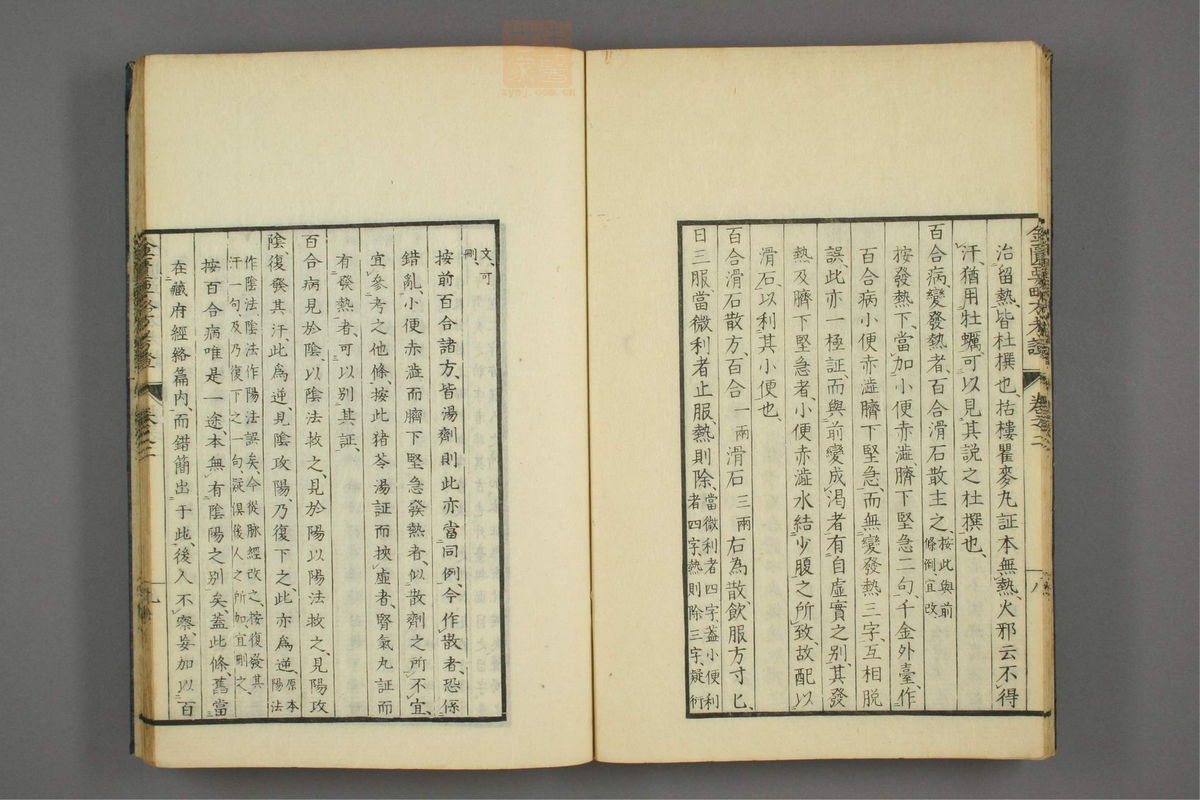 治留熱、皆杜撰也、栝樓瞿麥丸証本無熱、火邪云不得
汗、猶用牡蠣、可以見其説之杜撰也、
百合病、變發熱者、百合滑石散主之、按此與前
條例宜改、
按發熱下、當加小便赤澁臍下堅急二句、千金外臺、作
百合病小便赤澁臍下堅急、而無變發熱三字、互相脱
誤、此亦一極証、而與前變成渇者、有自虛實之別、其發
熱及臍下堅急者、小便赤澁水結少腹之所致、故配以
滑石、以利其小便也、
百合滑石散方、百合一兩滑石三兩右為散飲服方寸匕、
日三服、當微利者止服、熱則除、當微利者四字、蓋小便利
者四字、熱則除三字、疑衍
文、可
刪、
按前百合諸方、皆湯劑則此亦當同例、今作散者、恐係
錯亂、小便赤澁而臍下堅急發熱者、似散劑之所不宜、
宜參考之他條、按此猪苓湯証而挾虛者、腎氣丸証而
有發熱者、可以別其証、
百合病見於陰、以陰法救之、見於陽、以陽法救之、見陽攻
陰、復發其汗、此為逆、見陰攻陽、乃復下之、此亦為逆、原本
陽法
作陰法、陰法作陽法誤矣、今從脉經改之、按復發其
汗一句、及乃復下之一句、疑俱後人之所加、宜刪之、
按百合病唯是一途、本無有陰陽之別矣、蓋此條、舊當
在藏府經絡篇内、而錯簡出于此、後人不察、妄加以百
金匱要略方考證
卷之二
八
九